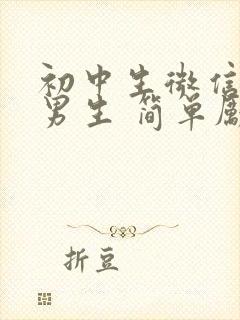 初中生微信
男生 简单
折豆